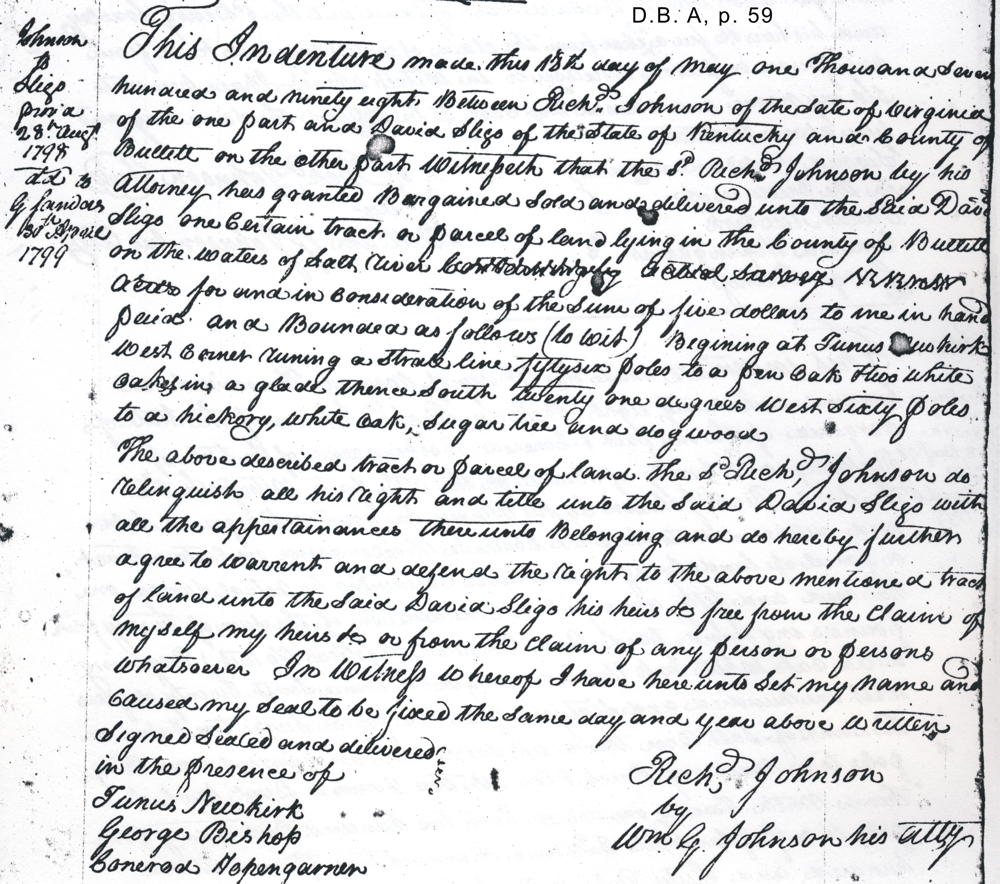 D.B. A, p. 59
Johnson
to
Sligo
prov'd
28th Augt.
1798
dd to
G Sanders
30th April
1799
This Indenture made this 18th day of May one Thousand Seven
hundred and ninety eight Between Richd. Johnson of the State of Virginia
of the one part and David Sligo of the State of Kentucky and County of
Bullett on the other part Witnesseth that the sd. Richd. Johnson by his
Attorney has granted Bargained Sold and delivered unto the Said David
Sligo one Certain tract or parcel of land lying in the County of Bullett
on the waters of Salt River Containing by actual survey
acres for and in Consideration of the Sum of five dollars to me in hand
paid and Bounded as follows (to wit) Begining at Tunus Newkirk
West Corner runing a Strate line fiftysix poles to a pen Oak & two white
oakes in a glade thence South twenty one degrees West Sixty poles
to a hickory, white oak, Sugar tree and dogwood
The above described tract or parcel of land the sd. Richd. Johnson do
relinguish all his right and title unto the Said David Sligo with
all the appertainances thereunto Belonging and do hereby further
agree to warrent and defend the right to the above mentioned tract
of land unto the Said David Sligo his heirs &c free from the Claim of
myself my heirs &c or from the Claim of any person or persons
whatsoever In Witness whereof I have hereunto Set my name and
Caused my Seal to be fixed the Same day and year above written
Signed Sealed and delivered
in the presence of
Tunus Newkirk
George Bishop
Conerod Hopengarner
Richd. Johnson
by
Wm G Johnson his atty